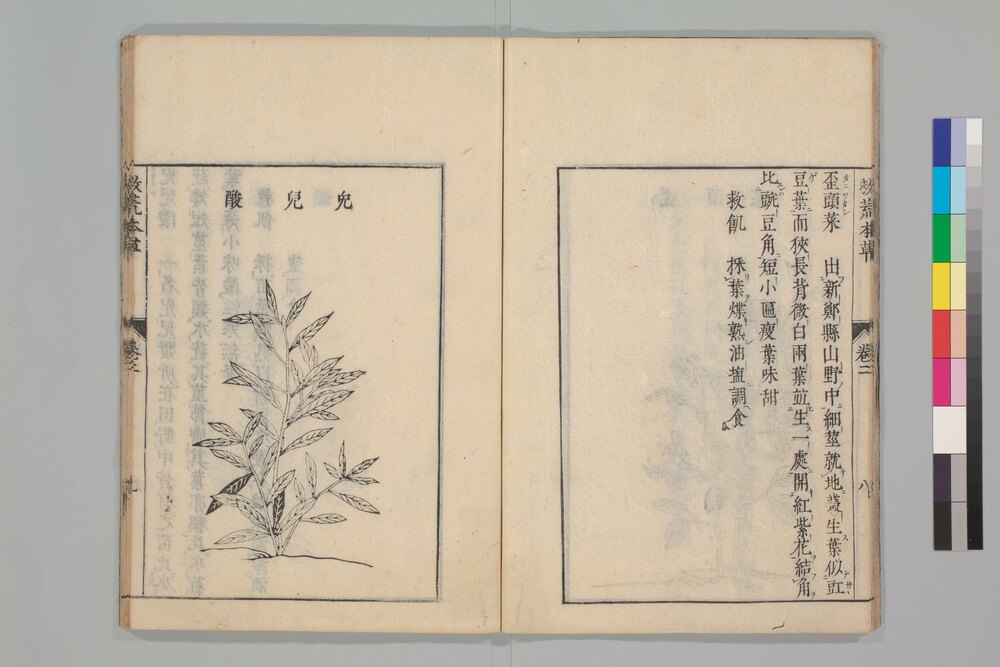 救荒本草 卷二 八
歪頭菜 出新鄭縣山野中細莖就地叢生葉似豇
豆葉而狹長背微白兩葉並生一處開紅紫花結角
比豌豆角短小匾瘦葉味甜
救飢 採葉煠熟油塩調食
兒兒酸
救荒本草 卷之 九